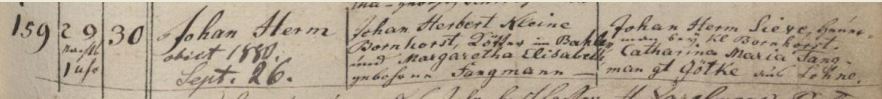 159
29
nachts
1 Uhr
30
Johan Herm
obiet 1880.
Sept. 26.
Johan Herbert Kleine
Bornhorst, Kötter im
und Margaretha Elisabeth
geborne Fangmann
Johan Herm
bey Kl Bornhorst.
Catharina Maria Fang-
man gt Götke aus Lohne.